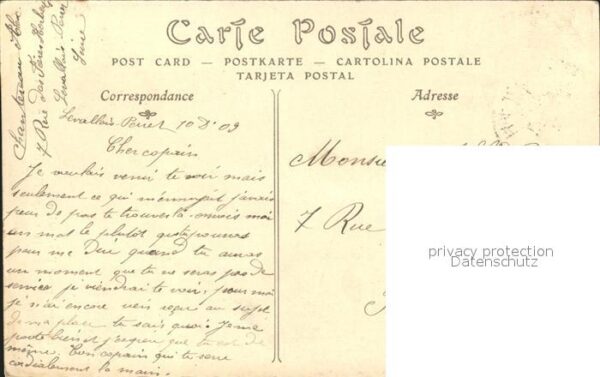 Carte Postale
POST CARD — POSTKARTE — CARTOLINA POSTALE
TARJETA POSTAL
Correspondance
Adresse
Levallois-Perret 10 Dr 09
Cher copain
Je voulais venir te voir mais
seulement ce qui m'ennuyait j'avais
peur de pas te trouver là envois moi
un mot le plutôt que tu pourras
pour me dire quand tu auras
un moment que tu ne seras pas de
service je viendrai te voir, pour moi
je n'ai encore rien reçu au sujet
de ma place tu sais quoi. Je me
porte bien et j'espère que toi est de
même. Ton copain qui te serre
cordialement la main.
7 Rue des
Levallois Perret
Seine
Monsieu
7 Rue
privacy protection
Datenschutz